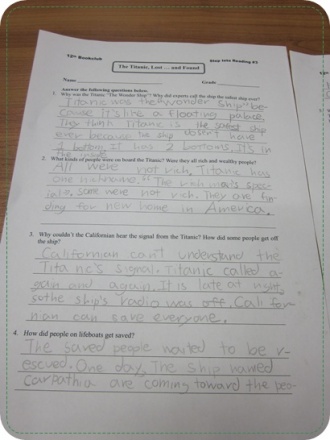 Ego Bookclub Step Into Reading #3
The Titanic, Lost ... and Found
Name Grade
Answer the following questions below.
1. Why was the Titanic "The Wonder Ship"? Why did experts call the ship the safest ship ever?
Titanic was the "wonder ship" be-
cause It's like a floating palace.
They think Titanic is the safest ship
ever because the ship doesn't have
1 bottom. It has 2 bottoms. It's in
2. What kinds of people were on board the Titanic? Were they all rich and wealthy people?
All were not rich. Titanic has
one nickname. "The rich man's spec-
ial". Some were not rich. They are fin-
ding for new home in America.
3. Why couldn't the Californian hear the signal from the Titanic? How did some people get off
the ship?
Californian can't understand the
Titanic's signal. Titanic called a-
gain and again. It is late at night,
so the ship's radio was off. Califor-
nian can save everyone.
4. How did people on lifeboats get saved?
The saved people waited to be r-
escued. One day, The ship named
Carpathia are coming toward the peo-